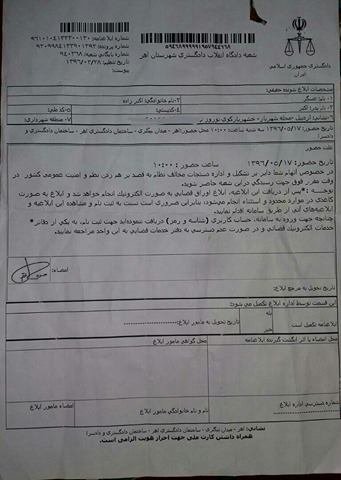 شماره ابلاغنامه: ۹۶۱۰۱۰۴۱۳۳۲۰۰۱۳۰
شماره پرونده:
شماره بایگانی شعبه:
تاریخ تنظیم: ۱۳۹۶/۰۳/۲۸
پیوست:
شعبه دادگاه انقلاب دادگستری شهرستان اهر
دادگستری جمهوری اسلامی
ایران
مشخصات ابلاغ شونده حقیقی:
۱-نام: عسگر
۲-نام خانوادگی: اکبر زاده
۳-نام پدر: اکبر
۴-کدپستی:
۵-کد ملی:
۶-نشانی: اردبیل -محله شهریار-
۷-منطقه:
تاریخ حضور: ۱۳۹۶/۰۵/۱۷ سه شنبه ساعت: ۱۰:۰۰ محل حضور: اهر - میدان بیگری - ساختمان دادگستری اهر - ساختمان دادگستری و
دادسرا
علت حضور
تاریخ حضور: ۱۳۹۶/۰۵/۱۷ ساعت حضور : ۱۰:۰۰
در خصوص اتهام شما دایر بر تشکیل و اداره دستجات مخالف نظام به قصد بر هم زدن نظم و امنیت عمومی کشور در
وقت مقرر فوق جهت رسیدگی در این شعبه حاضر شوید.
توجه: *پس از دریافت این ابلاغیه، ابلاغ اوراق قضایی به صورت الکترونیک انجام خواهد شد و ابلاغ به صورت
کاغذی در موارد محدود و استثناء انجام می‌شود؛ بنابراین ضروری است نسبت به ثبت نام و مشاهده این ابلاغیه و
ابلاغیه‌های آتی از طریق سامانه اقدام نمایید.
چنانچه جهت ورود به سامانه، حساب کاربری (شناسه و رمز) دریافت ننموده‌اید جهت ثبت نام، به یکی از دفاتر*
خدمات الکترونیک قضایی و در صورت عدم دسترسی به دفتر خدمات قضایی به این واحد مراجعه نمایید.
امضاء:
تاریخ تحویل به مرجع ابلاغ:
این قسمت توسط اداره ابلاغ تکمیل می شود:
ابلاغنامه تکمیل است
بله
خیر
تاریخ تحویل به مامور ابلاغ:
محل امضاء یا اثر انگشت گیرنده ابلاغنامه
محل گواهی مامور ابلاغ
شماره دسترسی اداره ابلاغ
نام و نام خانوادگی مامور ابلاغ
امضاء مامور ابلاغ
نشانی: اهر - میدان بیگری - ساختمان دادگستری اهر - ساختمان دادگستری و دادسرا
همراه داشتن کارت ملی جهت احراز هویت الزامی است.